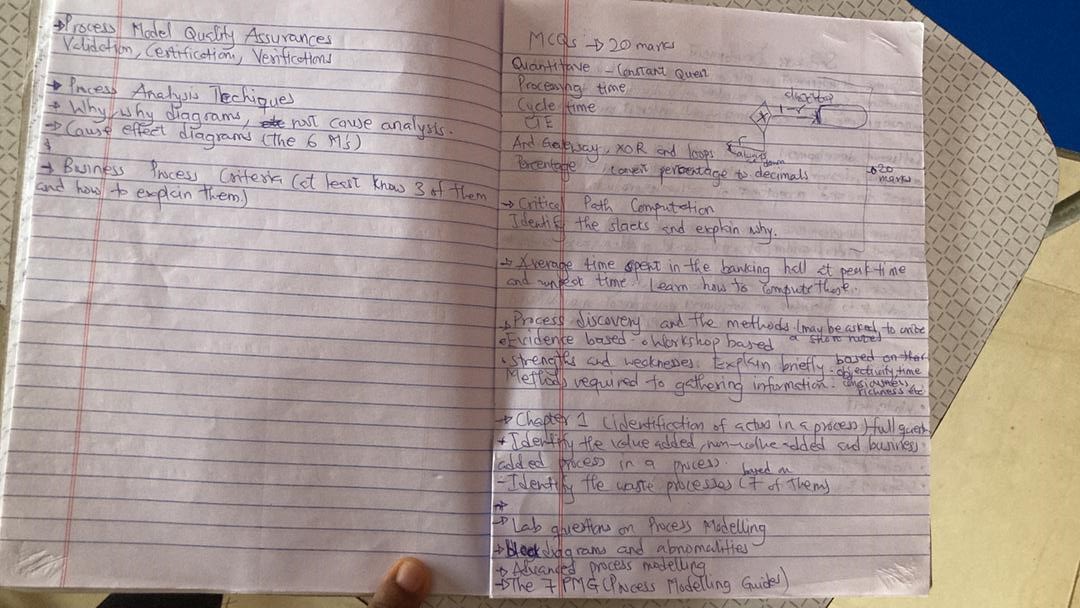 →Process Model Quality Assurances
Validation, Certification, Verifications
→ Process Analysis Techiques
→ Why why diagrams, root cause analysis.
→ Cause effect diagrams (The 6 M's)
→ Business Process Criteria (at least know 3 of them
and how to explain them.)
MCQs → 20 marks
Quantitave - Constant Quest
Processing time
Cycle time
CTE
And Gateway, XOR and loops
Percentage, convert percentage to decimals
→ 20
marks
→ Critical Path Computation
Identify the slacks and explain why.
→ Average time spent in the banking hall at peak time
and time. Learn how to compute those.
→ Process discovery and the methods (may be asked to write
a short notes)
• Evidence based • Workshop based
• strengths and weaknesses. Explain briefly based on their
objectivity, time
richness etc
Methods required to gathering information.
→ Chapter 1 (identification of actors in a process) - full quest
• Identify the value added, non-value added and business
added process in a process.
- Identify the waste processes based on (7 of them)
→
→ Lab questions on Process Modelling
→ diagrams and abnomalities
→ Advanced process modelling
→ The 7 PMG (Process Modelling Guides)